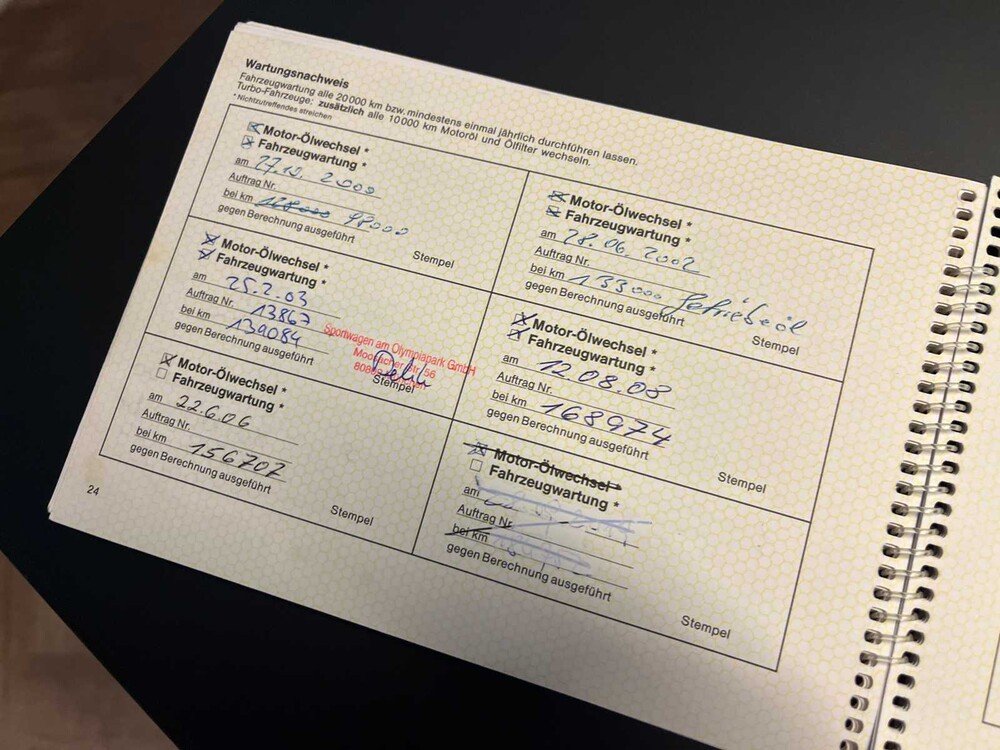 Wartungsnachweis
Fahrzeugwartung alle 20000 km bzw. mindestens einmal jährlich durchführen lassen.
Turbo-Fahrzeuge; zusätzlich alle 10000 km Motoröl und Ölfilter wechseln.
* Nichtzutreffendes streichen
Motor-Ölwechsel *
Fahrzeugwartung *
am 27.12. 2000
Auftrag Nr.
bei km 98000
gegen Berechnung ausgeführt
Stempel
Motor-Ölwechsel *
Fahrzeugwartung *
am 28.06. 2002
Auftrag Nr.
bei km 133000 Getriebeöl
gegen Berechnung ausgeführt
Stempel
Motor-Ölwechsel *
Fahrzeugwartung *
am 25.2.03
Auftrag Nr. 13867
bei km 139084
gegen Berechnung ausgeführt
Sportwagen am Olympiapark GmbH
Stempel
Motor-Ölwechsel *
Fahrzeugwartung *
am 12.08.08
Auftrag Nr.
bei km 168974
gegen Berechnung ausgeführt
Stempel
Motor-Ölwechsel *
Fahrzeugwartung *
am 22.6.06
Auftrag Nr.
bei km 156707
gegen Berechnung ausgeführt
Stempel
Motor-Ölwechsel *
Fahrzeugwartung *
am
Auftrag Nr.
bei km
gegen Berechnung ausgeführt
Stempel
24